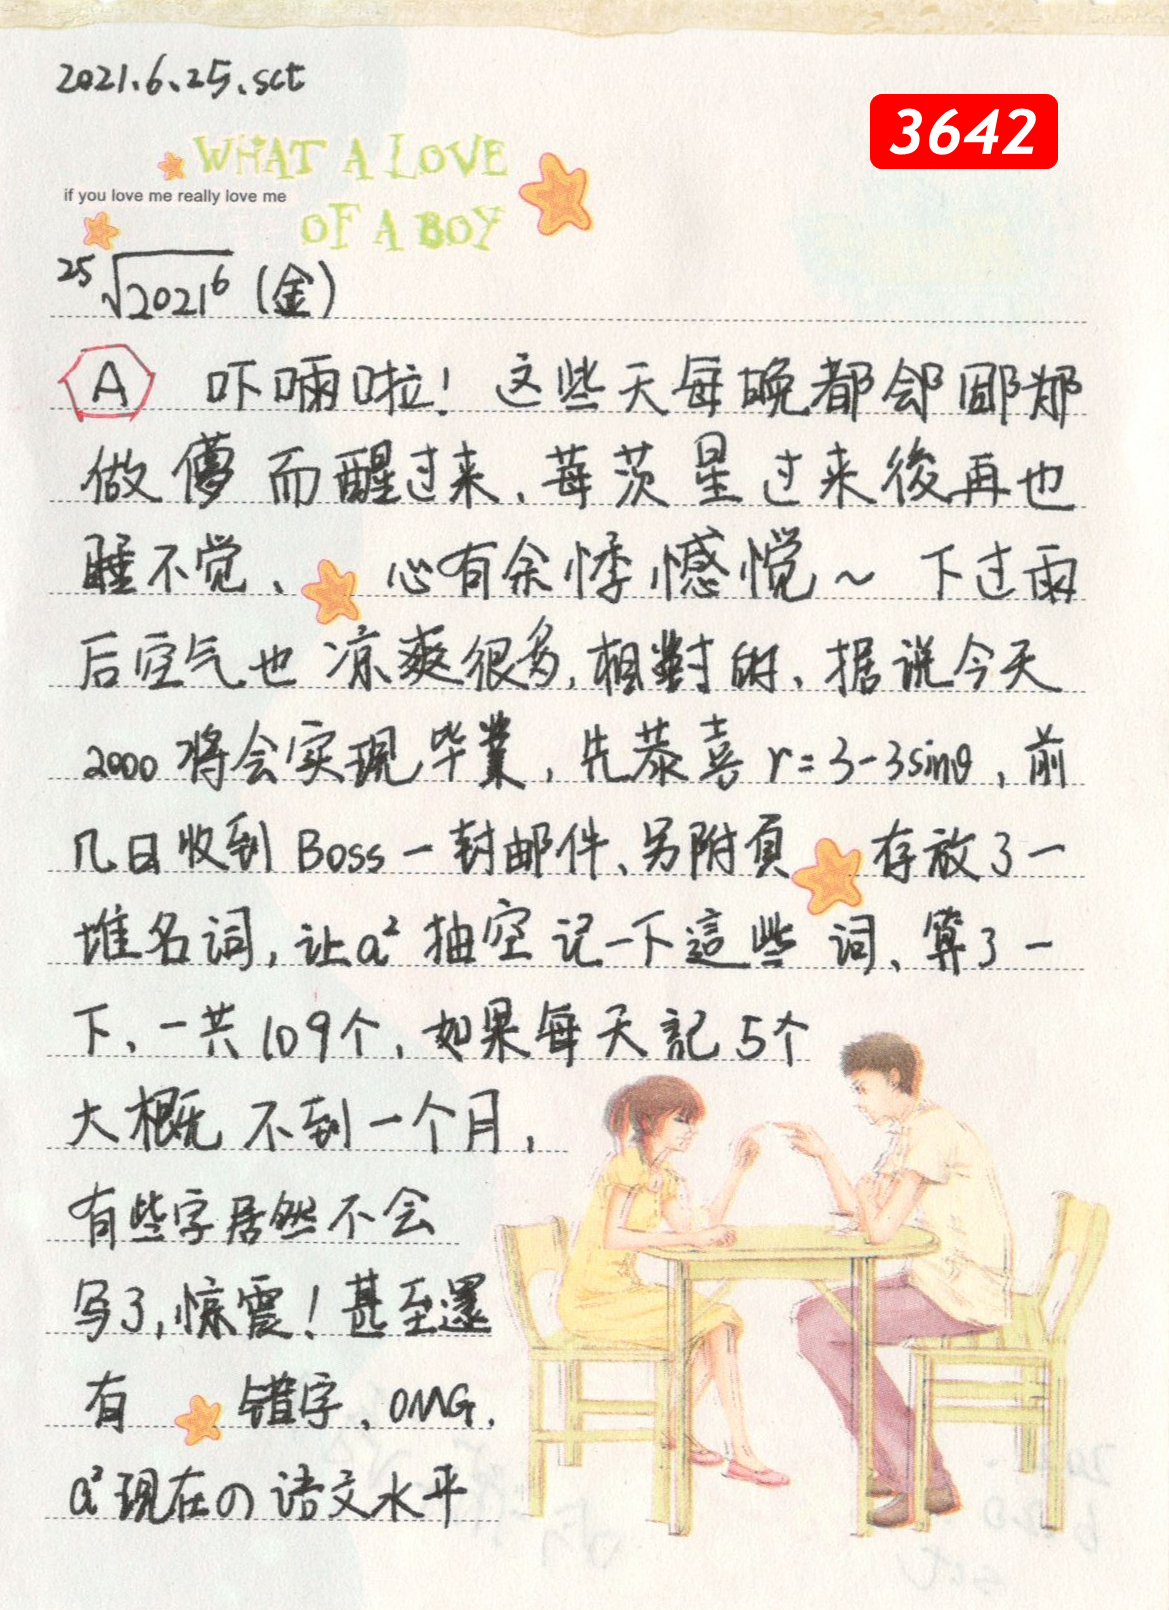 2021.6.25.sct
3642
WHAT A LOVE
if you love me really love me
OF A BOY
²⁵√2021⁶ (金)
A 吓 啦！这些天每晚都
做儚而醒过来、每茨星过来後再也
睡不觉、心有余悸憾慌～下过雨
后空气也凉爽很多,相對、据说今天
2000将会实现毕業,先恭喜r=3-3sinθ、前
几日收到Boss一封邮件、另附頁存放了一
堆名词,让a²抽空记一下這些词、算了一
下、一共109个,如果每天記5个
大概不到一个月,
有些字居然不会
写了,惊震！甚至還
有错字、OMG,
a²现在の语文水平